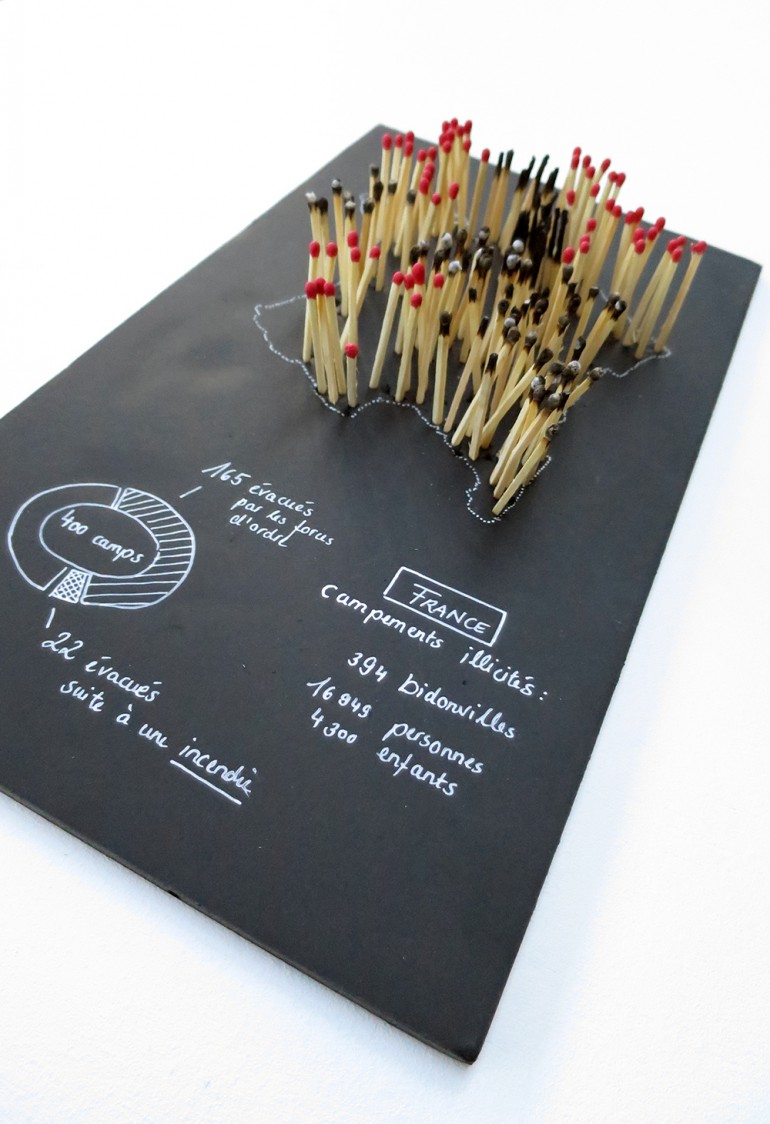 165 évacués
par les forces
d'ordre
400 camps
22 évacués
suite à un incendie
FRANCE
Campements illicites :
394 bidonvilles
16 949 personnes
4 300 enfants